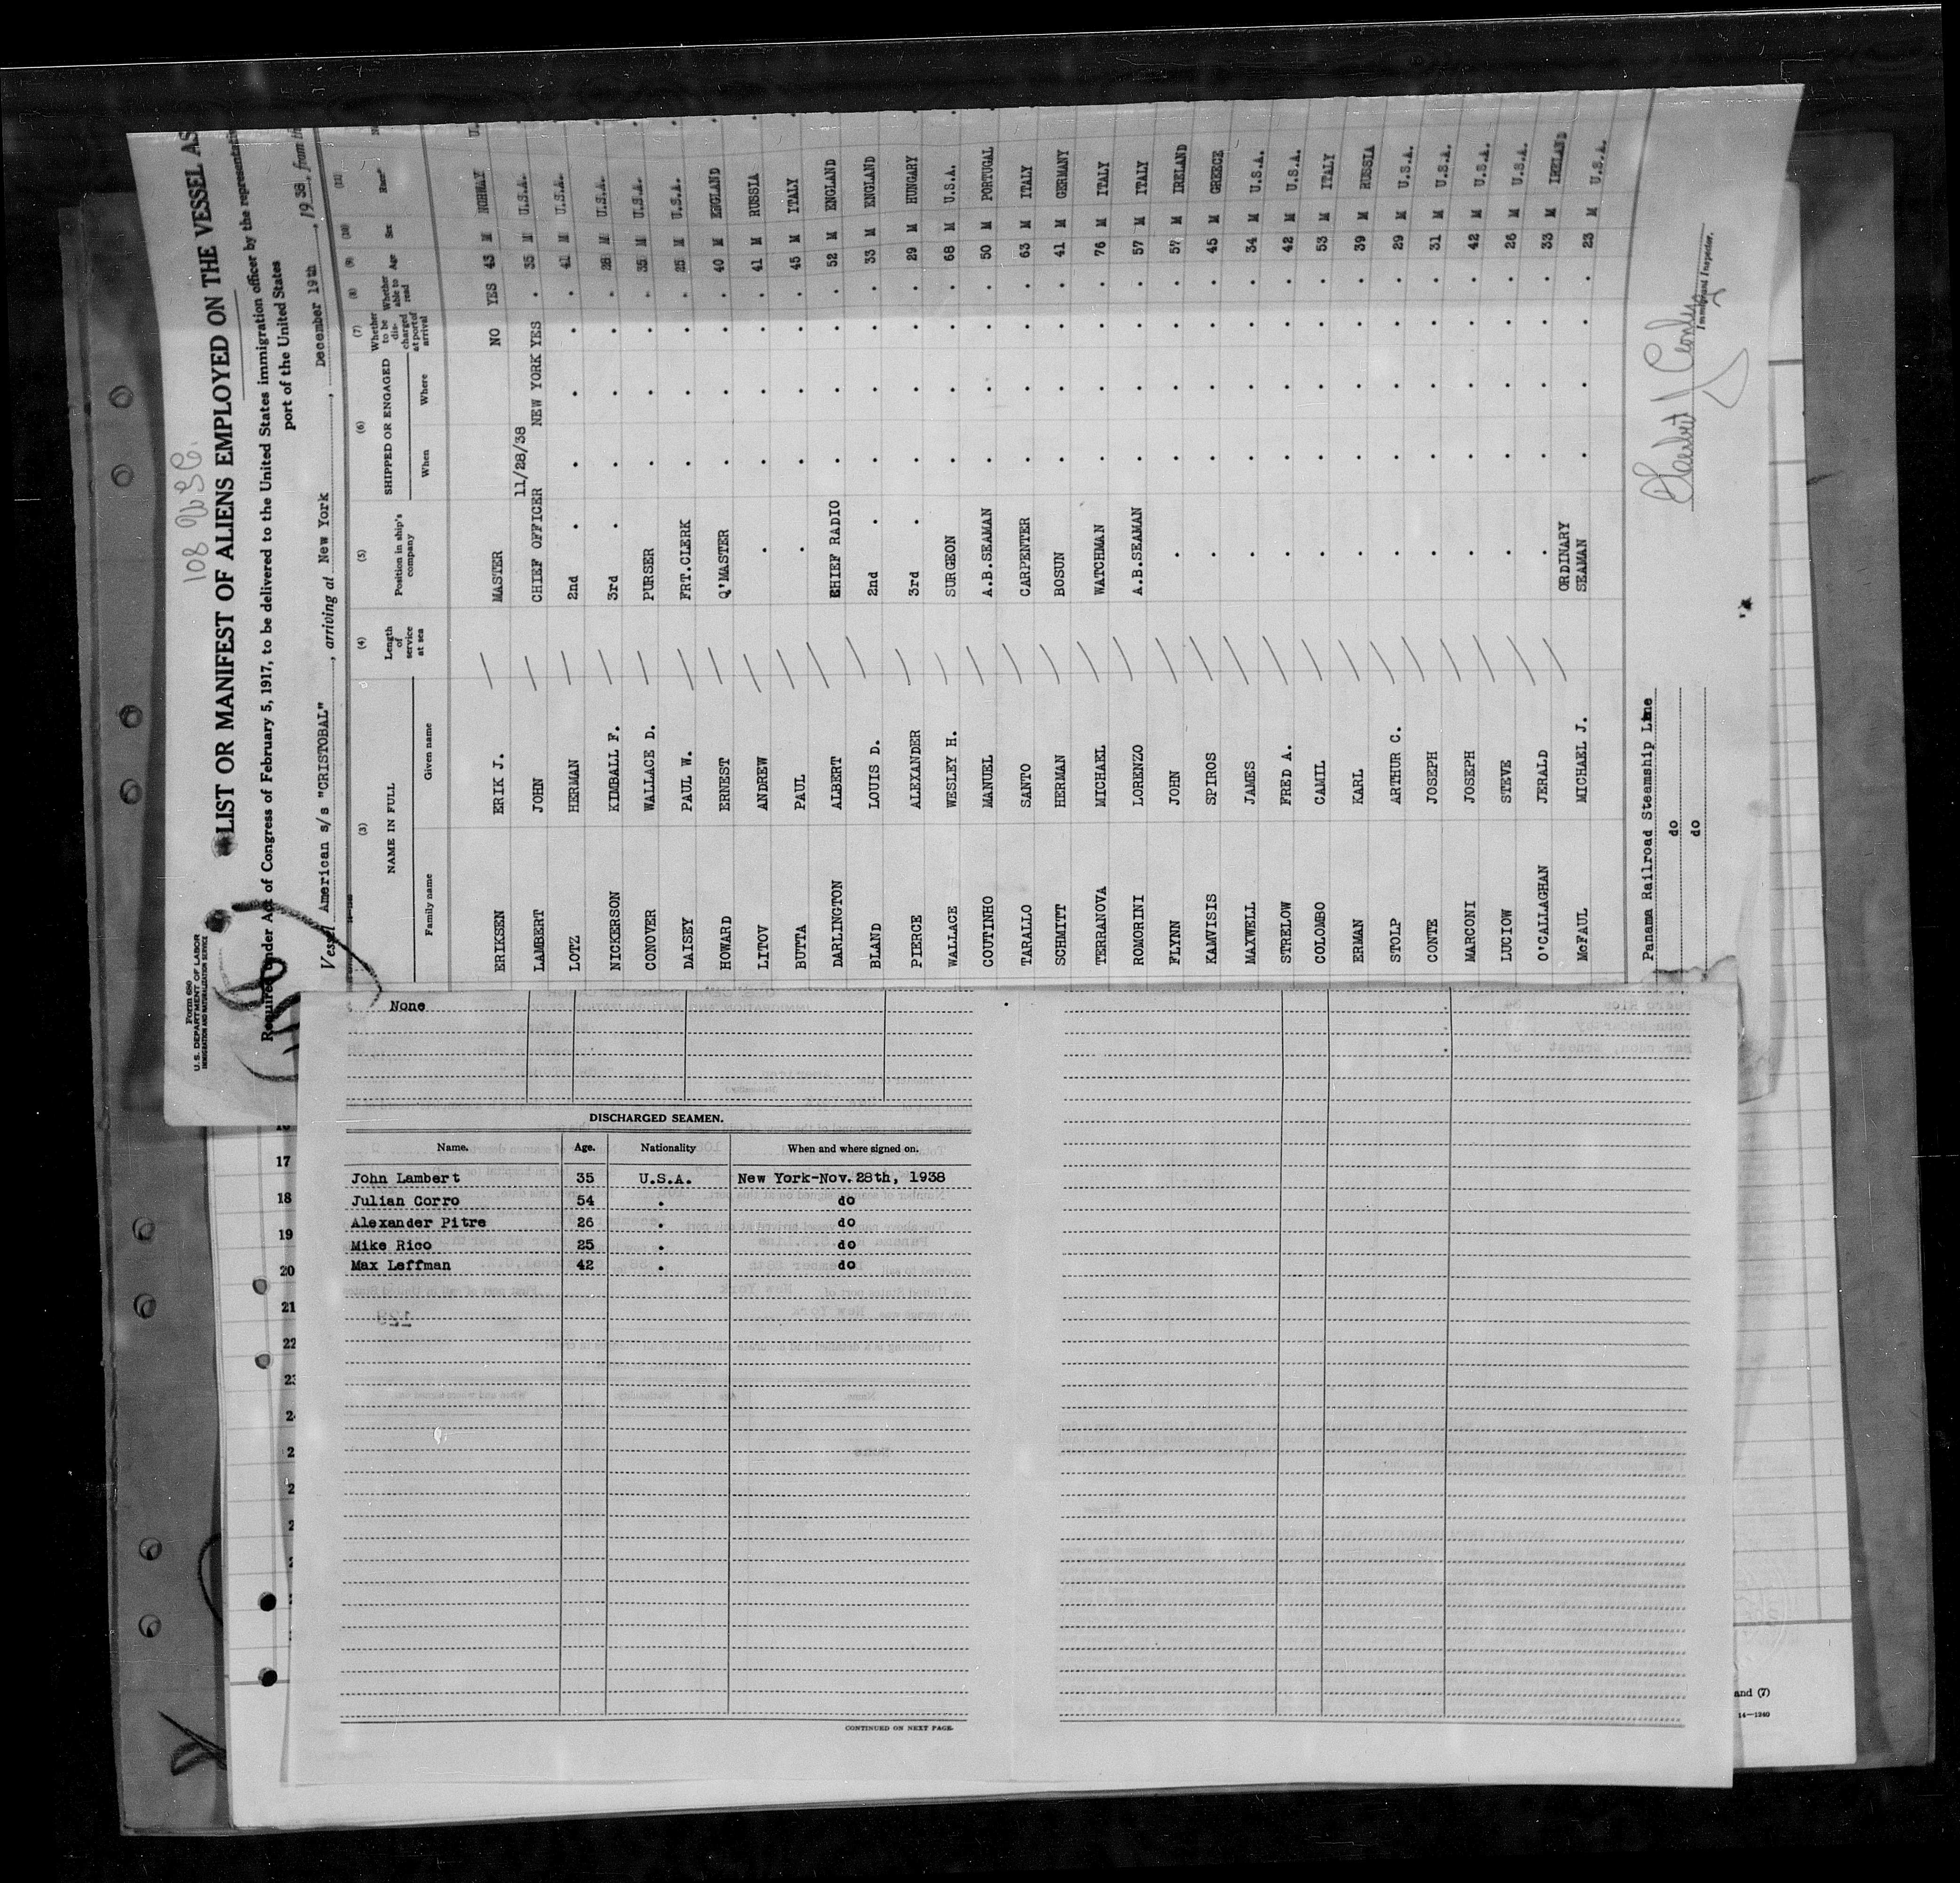 108 USC.
Form 680
U.S. DEPARTMENT OF LABOR
IMMIGRATION AND NATURALIZATION SERVICE
LIST OR MANIFEST OF ALIENS EMPLOYED ON THE VESSEL AS
Required under Act of Congress of February 5, 1917, to be delivered to the United States immigration officer by the representativ
port of the United States
Vessel American s/s "CRISTOBAL", arriving at New York, December 19th, 1938, from th
(3) (4) (5) (6) (7) (8) (9) (10) (11)
NAME IN FULL Length of service at sea Position in ship's company SHIPPED OR ENGAGED Whether to be discharged at port of arrival Whether able to read Age Sex Race*
Family name Given name When Where
ERIKSEN ERIK J. MASTER NO YES 43 M NORWAY U.
LAMBERT JOHN CHIEF OFFICER 11/28/38 NEW YORK YES . 35 M U.S.A. .
LOTZ HERMAN 2nd . . . . . 41 M U.S.A. .
NICKERSON KIMBALL F. 3rd . . . . . 28 M U.S.A. .
CONOVER WALLACE D. PURSER . . . . 35 M U.S.A. .
DAISEY PAUL W. FRT.CLERK . . . . 25 M U.S.A. .
HOWARD ERNEST Q'MASTER . . . . 40 M ENGLAND .
LITOV ANDREW . . . . . 41 M RUSSIA .
BUTTA PAUL . . . . . 45 M ITALY .
DARLINGTON ALBERT CHIEF RADIO . . . . 52 M ENGLAND .
BLAND LOUIS D. 2nd . . . . . 33 M ENGLAND .
PIERCE ALEXANDER 3rd . . . . . 29 M HUNGARY .
WALLACE WESLEY H. SURGEON . . . . 68 M U.S.A. .
COUTINHO MANUEL A.B.SEAMAN . . . . 50 M PORTUGAL
TARALLO SANTO CARPENTER . . . . 63 M ITALY
SCHMITT HERMAN BOSUN . . . . 41 M GERMANY
TERRANOVA MICHAEL WATCHMAN . . . . 76 M ITALY
ROMORINI LORENZO A.B.SEAMAN . . . . 57 M ITALY
FLYNN JOHN . . . . . 57 M IRELAND
KAMVISIS SPIROS . . . . . 45 M GREECE
MAXWELL JAMES . . . . . 34 M U.S.A.
STRELOW FRED A. . . . . . 42 M U.S.A.
COLOMBO CAMIL . . . . . 53 M ITALY
ERMAN KARL . . . . . 39 M RUSSIA
STOLP ARTHUR C. . . . . . 29 M U.S.A.
CONTE JOSEPH . . . . . 31 M U.S.A.
MARCONI JOSEPH . . . . . 42 M U.S.A.
LUCIOW STEVE . . . . . 26 M U.S.A.
O'CALLAGHAN JERALD . . . . . 33 M IRELAND
McFAUL MICHAEL J. ORDINARY SEAMAN . . . . 23 M U.S.A.
Panama Railroad Steamship Line
do
do
Immigrant Inspector.
None
DISCHARGED SEAMEN.
Name. Age. Nationality When and where signed on.
John Lambert 35 U.S.A. New York-Nov.28th, 1938
Julian Corro 54 . do
Alexander Pitre 26 . do
Mike Rico 25 . do
Max Leffman 42 . do
CONTINUED ON NEXT PAGE.
17
18
19
20
21
22
and (7)
14—1240